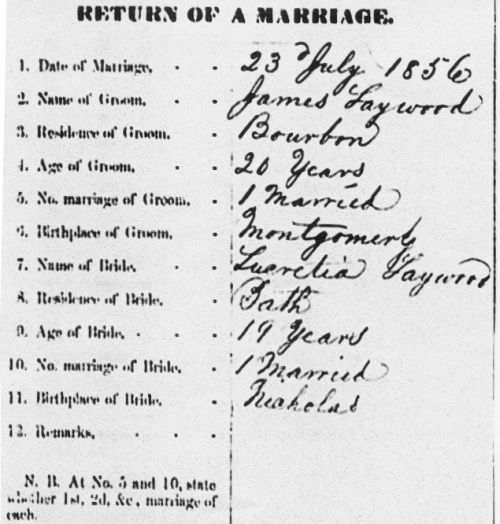 RETURN OF A MARRIAGE.
1. Date of Marriage, - - 23d July 1856
2. Name of Groom, - - James Taywood
3. Residence of Groom, - Bourbon
4. Age of Groom, - - 20 Years
5. No. marriage of Groom, - 1 Married
6. Birthplace of Groom, - Montgomery
7. Name of Bride, - - Lucretia Taywood
8. Residence of Bride, - Bath
9. Age of Bride, - - - 19 Years
10. No. marriage of Bride, - 1 Married
11. Birthplace of Bride, - Nicholas
12. Remarks, - - -
N. B. At No. 5 and 10, state
whether 1st, 2d, &c, marriage of
each.